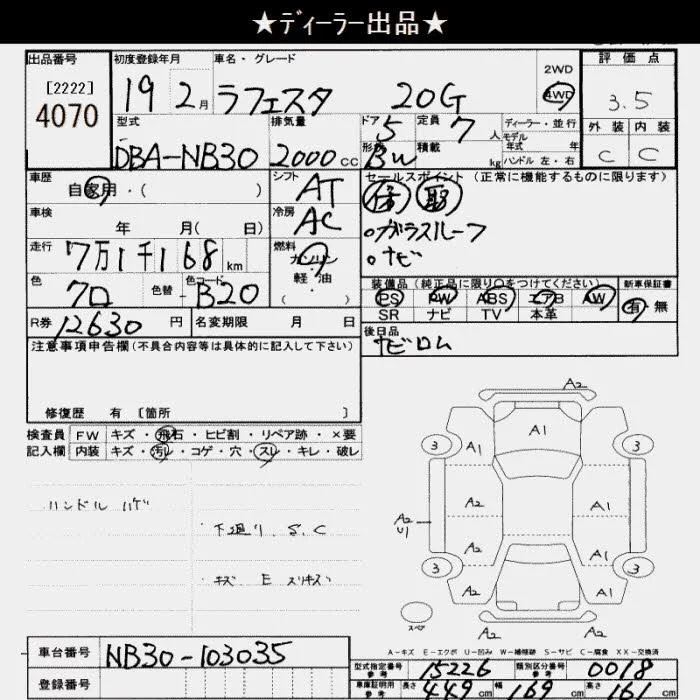 ★ディーラー出品★
出品番号
[2222]
4070
初度登録年月
19 2月
車名・グレード
ラフェスタ 20G
2WD
4WD
評価点
3.5
外装 内装
C C
型式
DBA-NB30
排気量
2000cc
ドア 5
形状 BW
定員 7人
積載 kg
ディーラー・並行
モデル年式 年
ハンドル 左・右
車歴
自家用・( )
シフト
AT
車検
年 月( 日)
冷房
AC
走行
7万1千168km
燃料
ガソリン
軽・油
・( )
色
クロ
色替
色コード
B20
R券 12630円
名変期限 月 日
セールスポイント(正常に機能するものに限ります)
・ガラスルーフ
・ナビ
装備品(純正品に限り○をつけてください)
PS PW ABS エアB AW
SR ナビ TV 本革
新車保証書
有 無
後日品
ナビロム
注意事項申告欄(不具合内容等は具体的に記入して下さい)
修復歴 有 [箇所 ]
検査員 FW キズ・飛石・ヒビ割・リペア跡・×要
記入欄 内装 キズ・汚レ・コゲ・穴・スレ・キレ・破レ
ハンドル ハゲ
下廻り S.C
キズ E スリキズ
A2
A1
3 A1 3
A2 A1
A2
U1
A2 A1
3 3
A2 A2 A1
A2 A2
スペア
A-キズ E-エクボ U-凹み W-補修跡 S-サビ C-腐食 XX-交換済
車台番号 NB30-103035
登録番号
型式指定番号 参考 15226
類別区分番号 参考 0018
車庫証明用 参考 長さ 449cm 幅 169cm 高さ 161cm